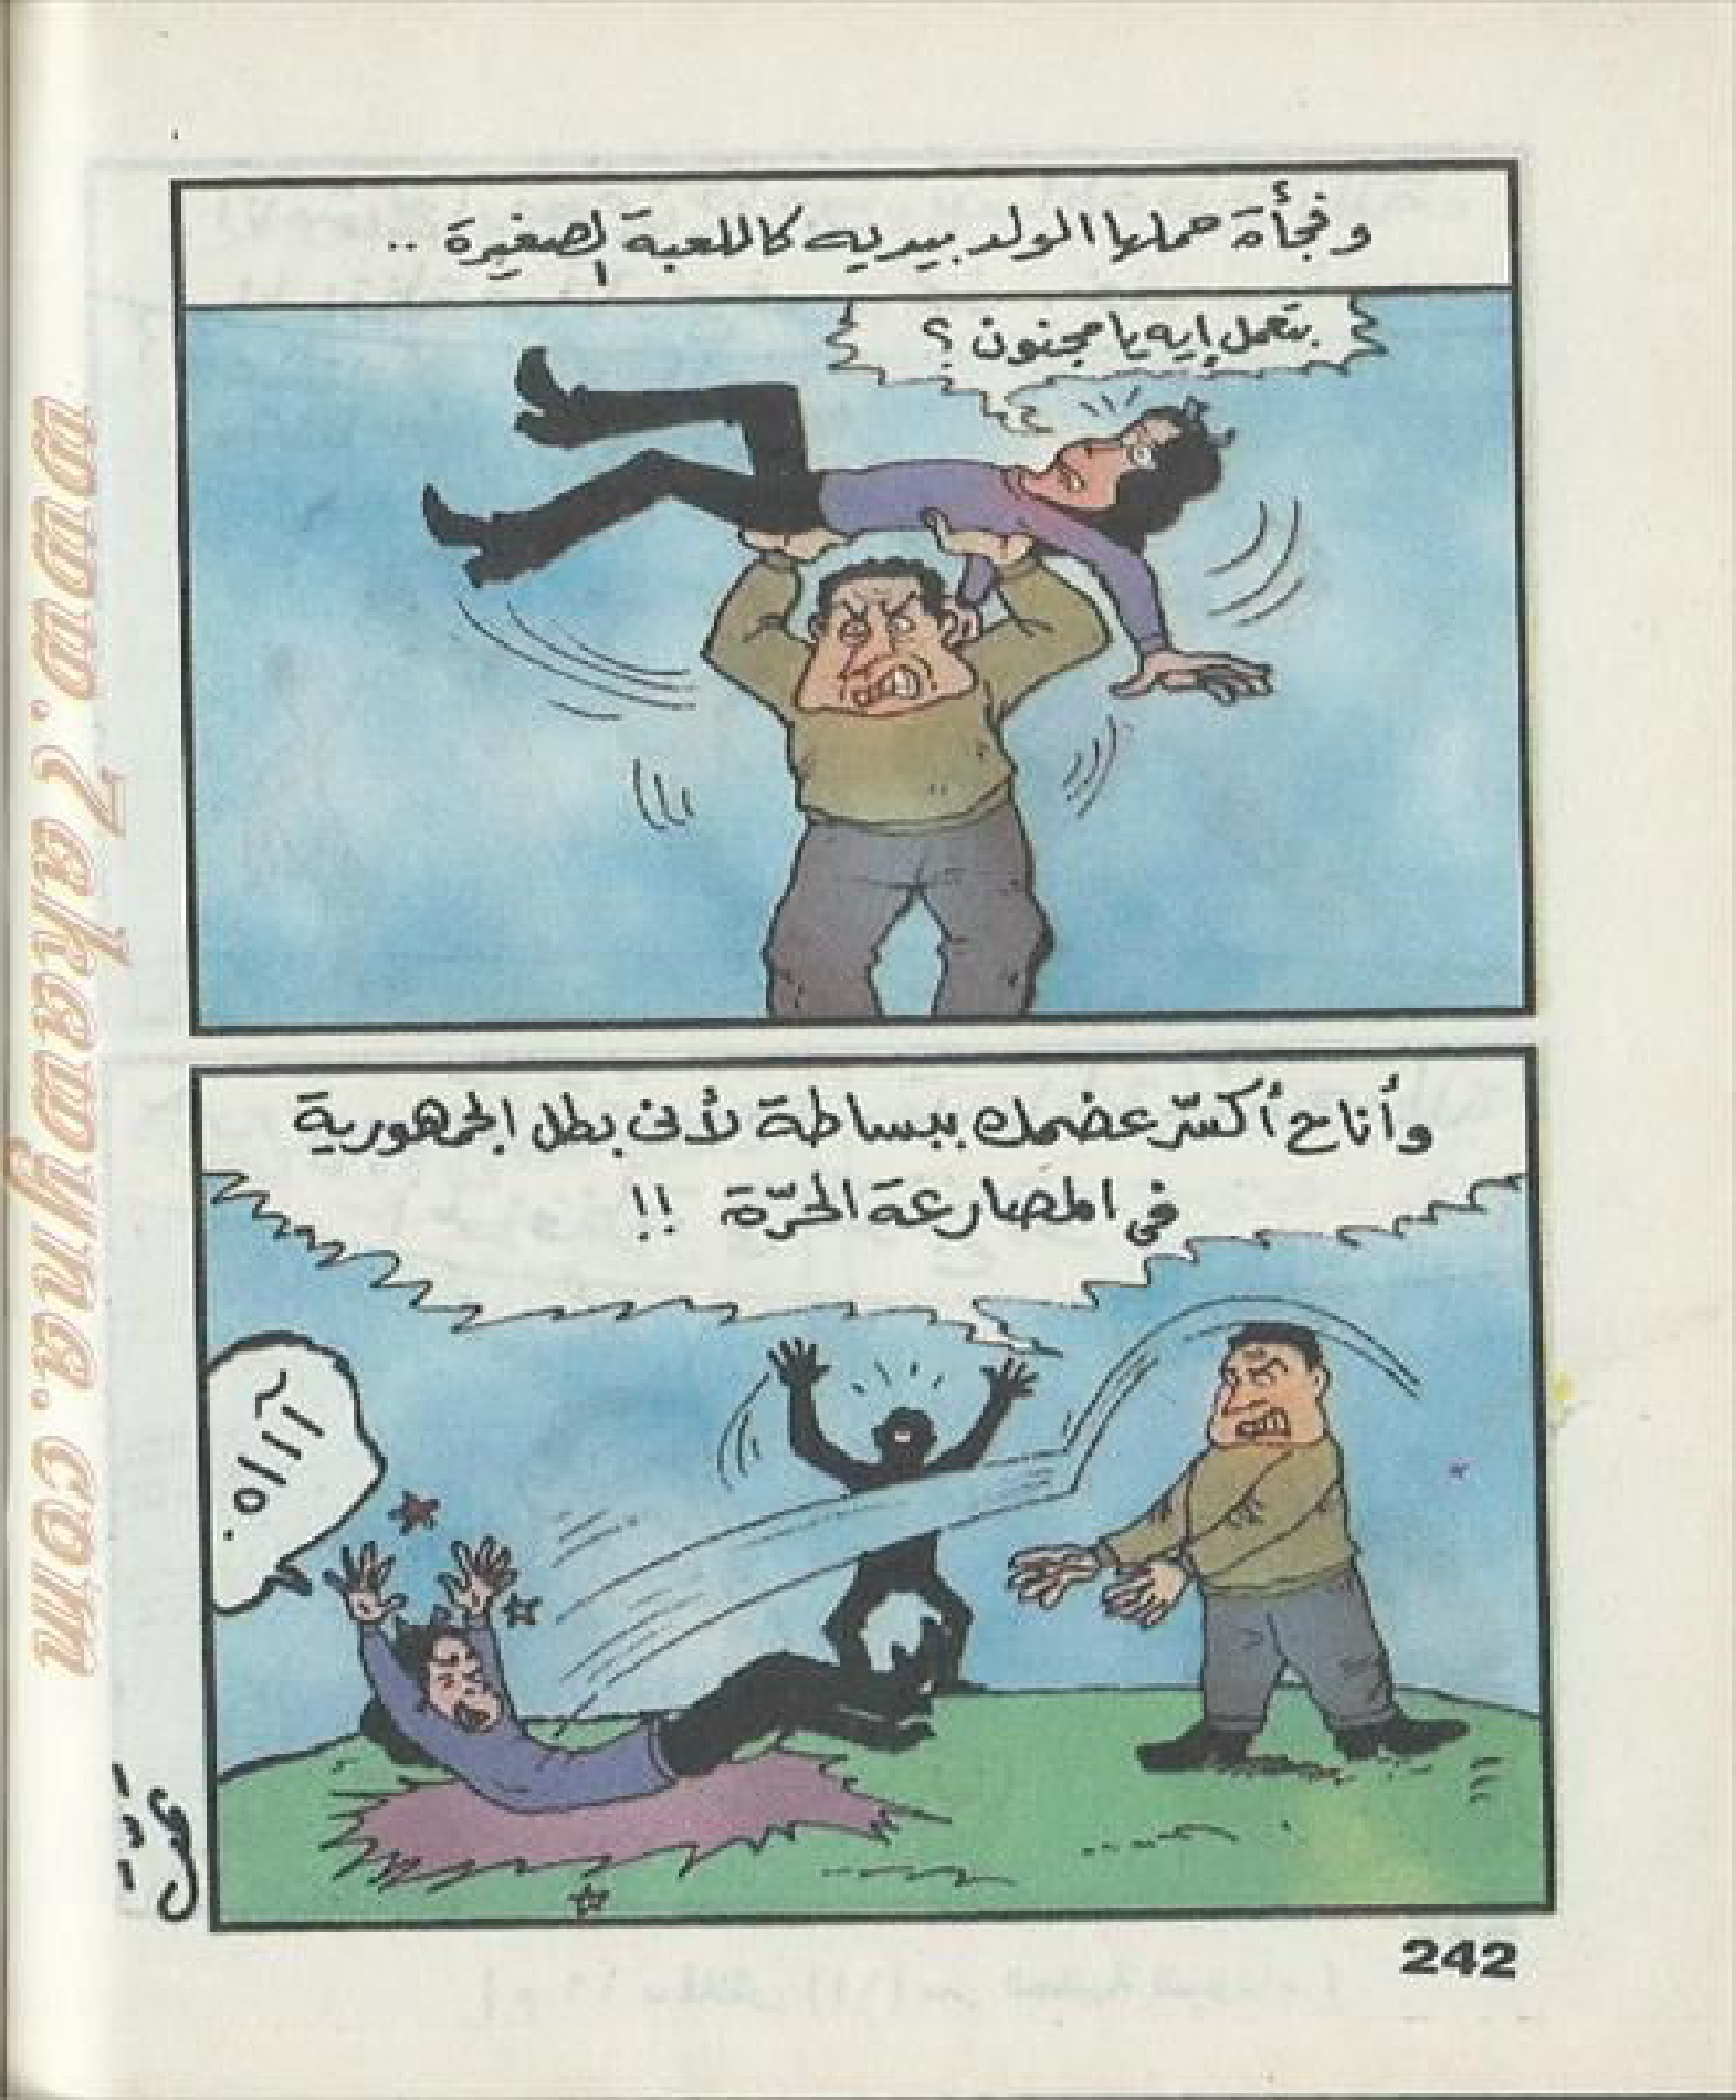 وفجأة حملها الولد بيديه كاللعبة الصغيرة ..
بتعمل إيه يا مجنون ؟
وأناح أكسّر عضمك ببساطة لأنى بطل الجمهورية
فى المصارعة الحرّة !!
آااه.
242
www.7akawyna.com